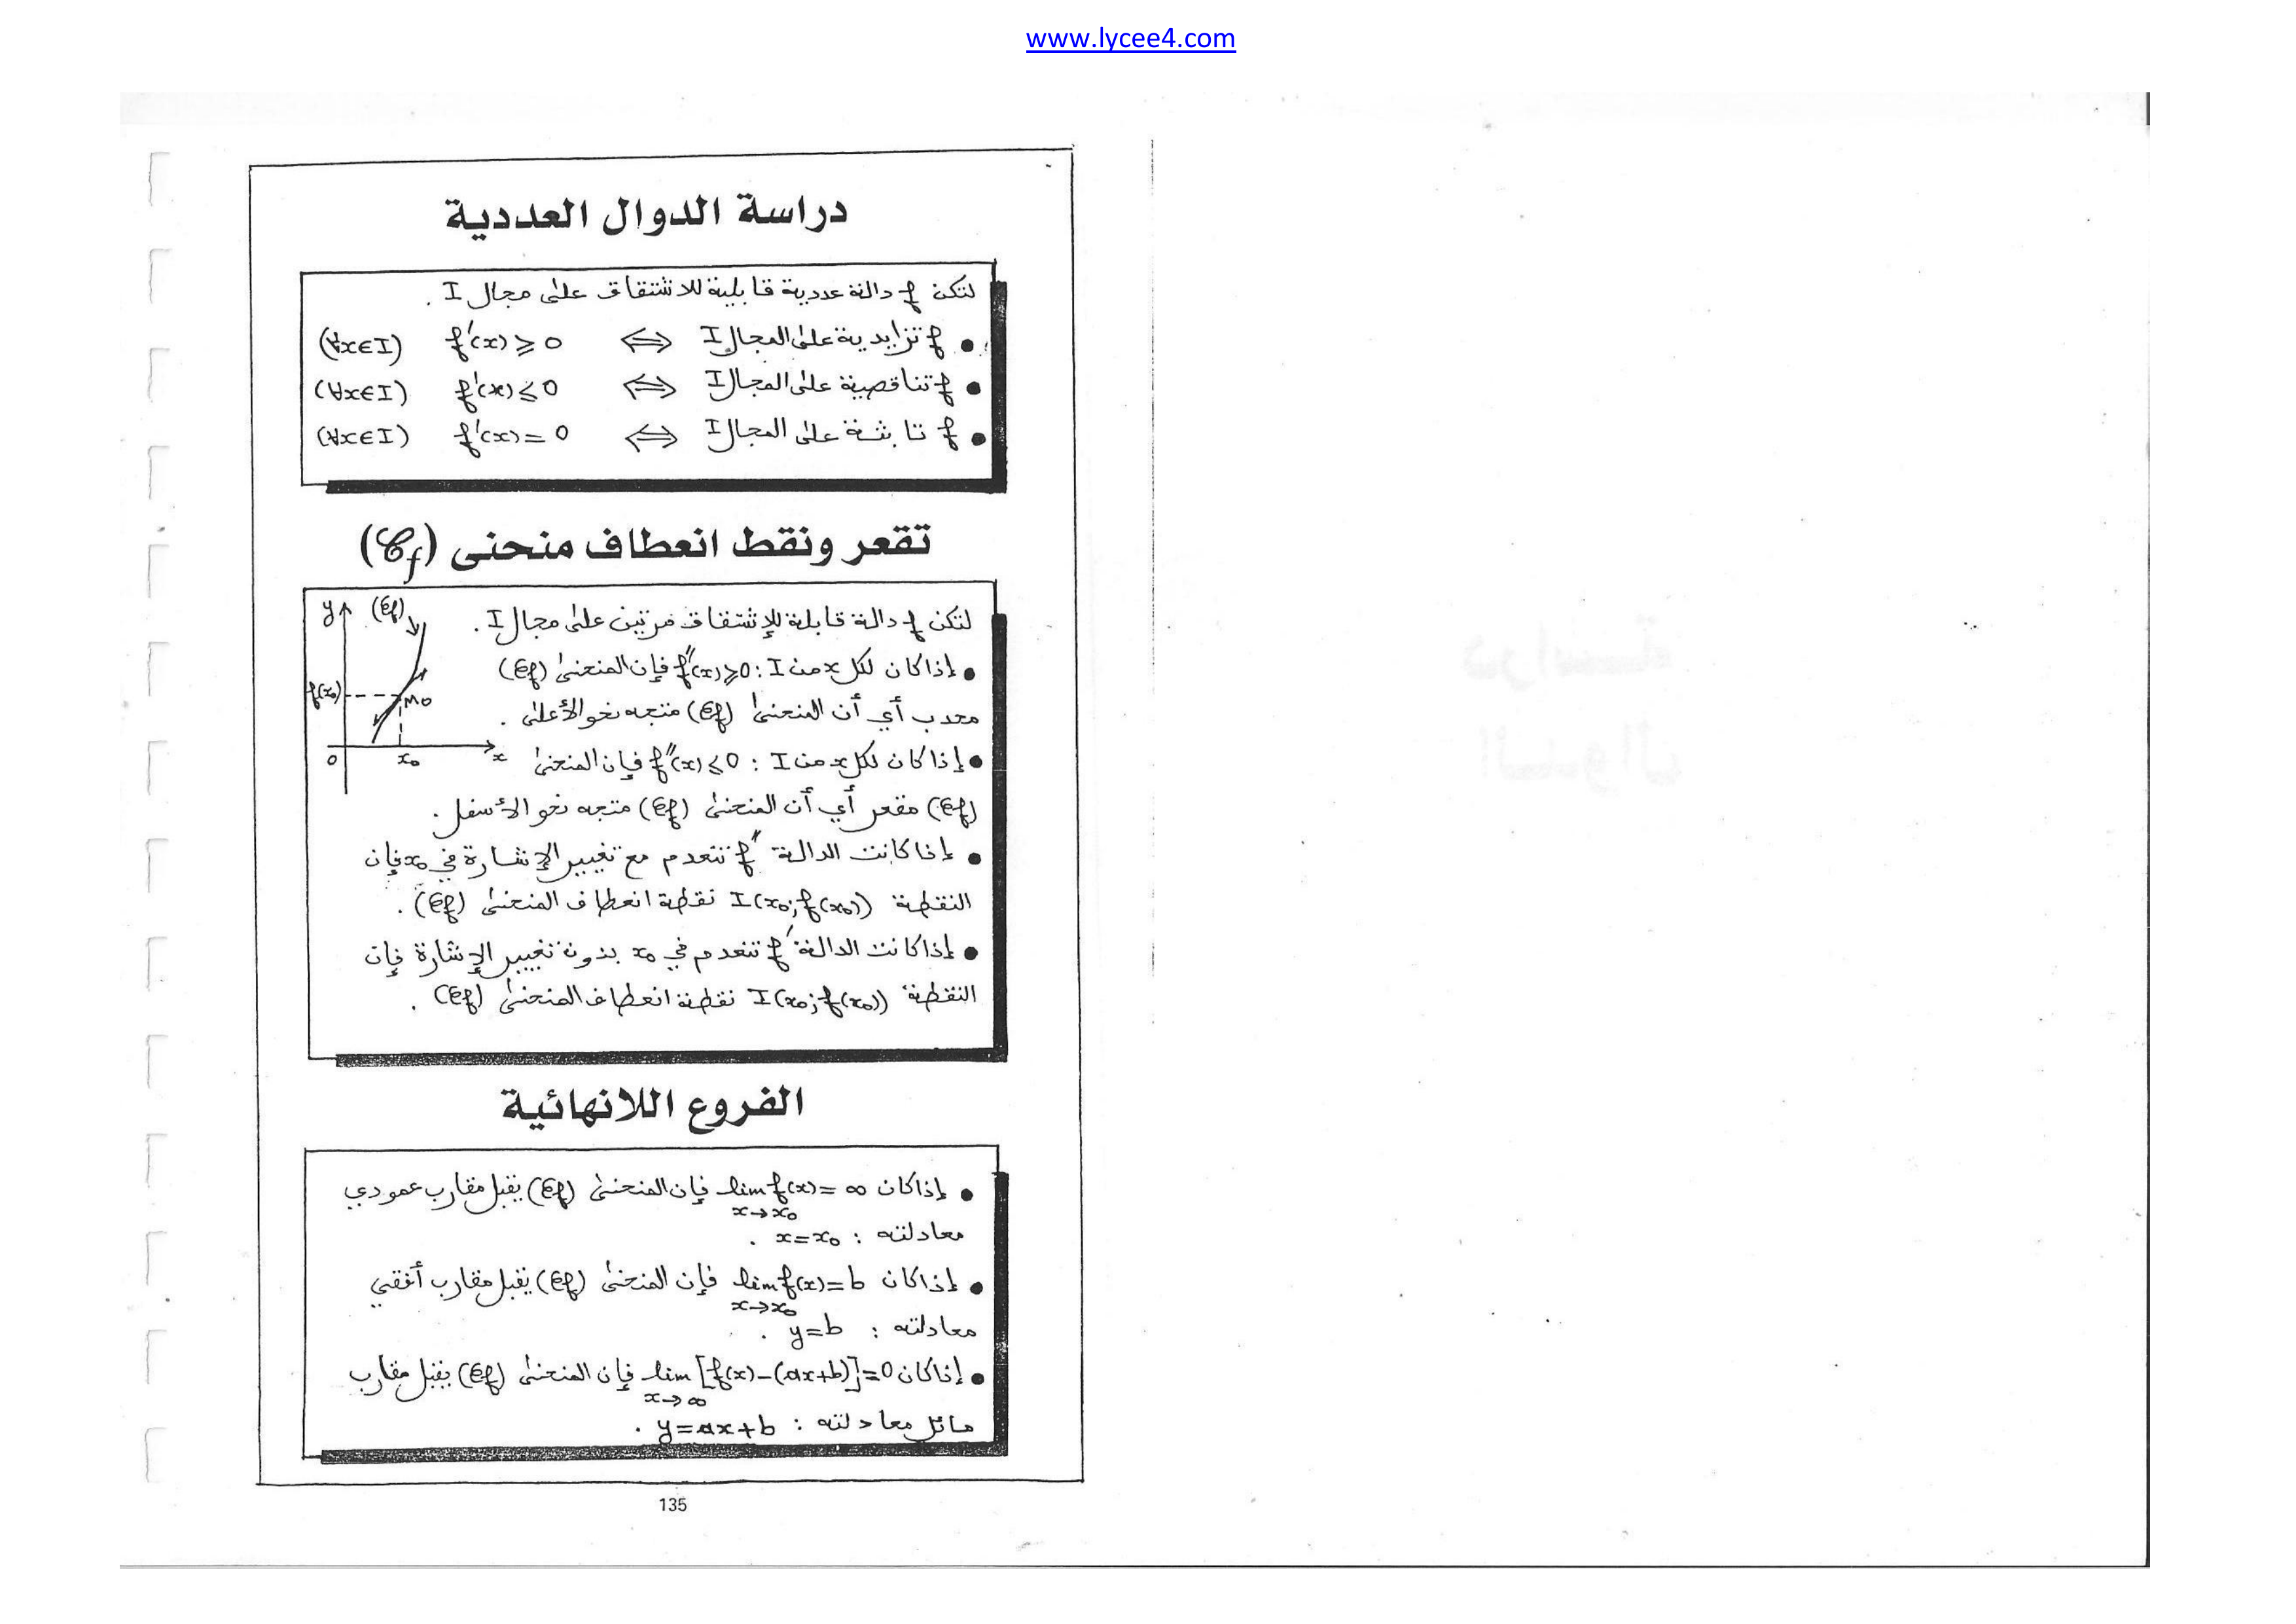 www.lycee4.com
دراسة الدوال العددية
لتكن f دالة عددية قابلية للاشتقاق على مجال I .
• f تزايدية على المجال I ⟺ f'(x) ⩾ 0 (∀x∈I)
• f تناقصية على المجال I ⟺ f'(x) ⩽ 0 (∀x∈I)
• f تابثة على المجال I ⟺ f'(x) = 0 (∀x∈I)
تقعر ونقط انعطاف منحنى (𝒞f)
لتكن f دالة قابلة للإشتقاق مرتين على مجال I .
• إذا كان لكل x من I : f''(x) ⩾ 0 فإن المنحنى (𝒞f)
محدب أي أن المنحنى (𝒞f) متجه نحو الأعلى .
• إذا كان لكل x من I : f''(x) ⩽ 0 فإن المنحنى
(𝒞f) مقعر أي أن المنحنى (𝒞f) متجه نحو الأسفل .
• إذا كانت الدالة f'' تنعدم مع تغيير الإشارة في x₀ فإن
النقطة I(x₀;f(x₀)) نقطة انعطاف المنحنى (𝒞f) .
• إذا كانت الدالة f' تنعدم في x₀ بدون تغيير الإشارة فإن
النقطة I(x₀;f(x₀)) نقطة انعطاف المنحنى (𝒞f) .
y (𝒞f)
f(x₀) M₀
0 x₀ x
الفروع اللانهائية
• إذا كان lim f(x) = ∞ فإن المنحنى (𝒞f) يقبل مقارب عمودي
x→x₀
معادلته : x = x₀ .
• إذا كان lim f(x) = b فإن المنحنى (𝒞f) يقبل مقارب أفقي
x→x₀
معادلته : y = b .
• إذا كان lim [f(x) − (ax+b)] = 0 فإن المنحنى (𝒞f) يقبل مقارب
x→∞
مائل معادلته : y = ax + b .
135